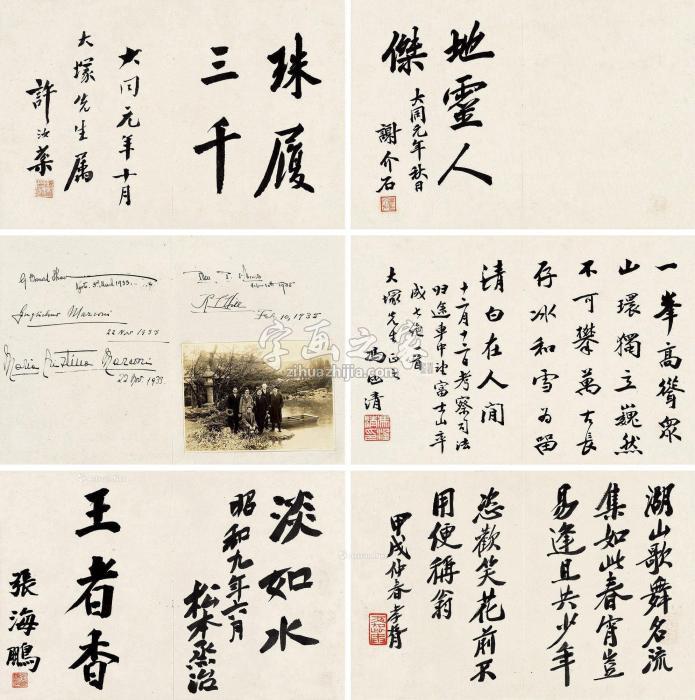 珠履
三千
大同元年十月
大塚先生属
許汝棻
地靈人
傑
大同元年秋日
謝介石
G Bernard Shaw
3rd March 1933
Guglielmo Marconi
22 Nov 1933
Maria Cristina Marconi
22 Nov. 1933.
1935
Feb 10, 1935
字画之家
zihuazhijia.com
一峯高聳眾
山環獨立巍然
不可攀萬古長
存冰和雪為留
清白在人间
十二月十二日考察司法
归途車中望富士山率
成七絕一首
大塚先生正之
馮涵清
淡如水
昭和九年六月
松本烝治
王者香
張海鵬
湖山歌舞名流
集如此春宵豈
易逢且共少年
恣歡笑花前不
用便稱翁
甲戌仲春孝胥